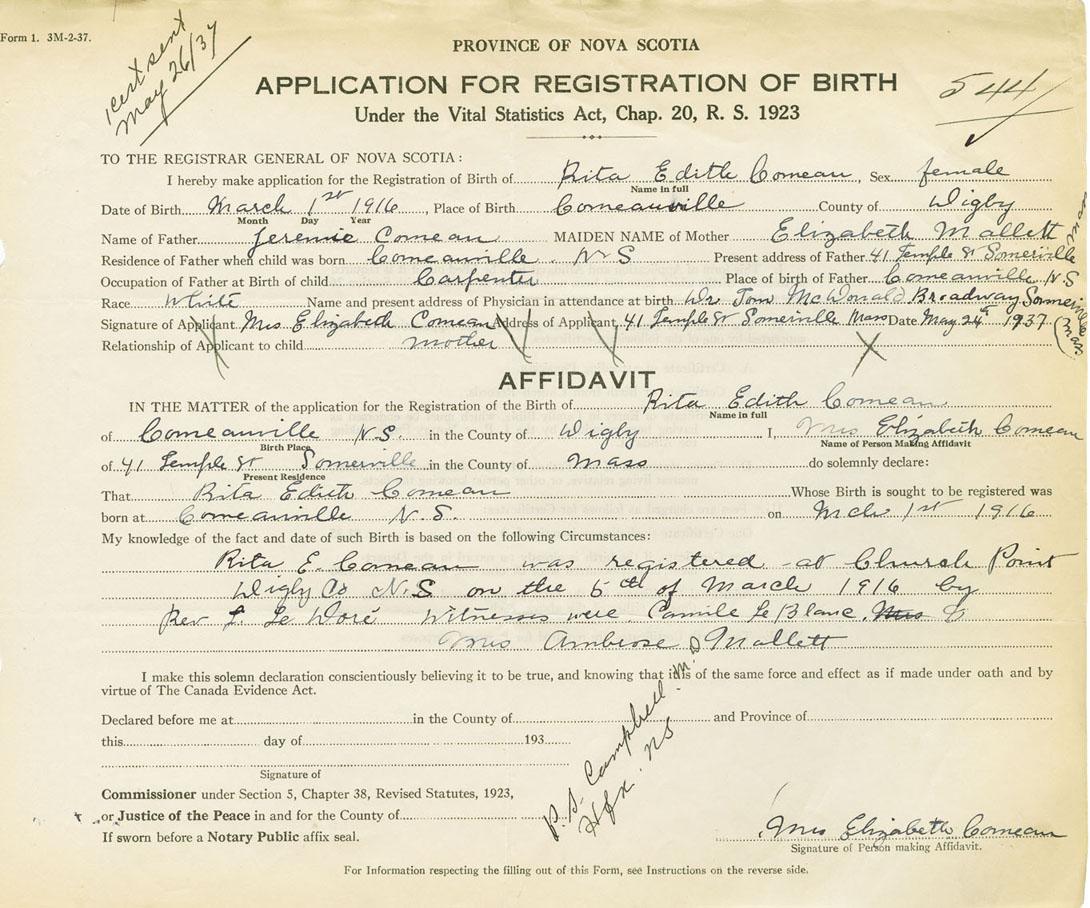 Form 1. 3M-2-37.
cert sent
May 26/37
PROVINCE OF NOVA SCOTIA
APPLICATION FOR REGISTRATION OF BIRTH
544
Under the Vital Statistics Act, Chap. 20, R. S. 1923
TO THE REGISTRAR GENERAL OF NOVA SCOTIA:
I hereby make application for the Registration of Birth of Rita Edith Comeau, Sex female
Name in full
Date of Birth March 1st 1916, Place of Birth Comeauville County of Digby
Month Day Year
Name of Father Jeremie Comeau MAIDEN NAME of Mother Elizabeth Mallett
Residence of Father when child was born Comeauville N S Present address of Father 41 Temple St Somerville Mass
Occupation of Father at Birth of child Carpenter Place of birth of Father Comeauville N.S
Race White Name and present address of Physician in attendance at birth Dr Tom McDonald Broadway Somerville Mass
Signature of Applicant Mrs Elizabeth Comeau Address of Applicant 41 Temple St Somerville Mass Date May 24th 1937
Relationship of Applicant to child mother
AFFIDAVIT
IN THE MATTER of the application for the Registration of the Birth of Rita Edith Comeau
Name in full
of Comeauville N.S. in the County of Digby I, Mrs Elizabeth Comeau
Birth Place Name of Person Making Affidavit
of 41 Temple St Somerville in the County of Mass do solemnly declare:
Present Residence
That Rita Edith Comeau Whose Birth is sought to be registered was
born at Comeauville N.S. on Mch 1st 1916
My knowledge of the fact and date of such Birth is based on the following Circumstances:
Rita E. Comeau was registered at Church Point
Digby Co N.S on the 5th of March 1916 by
Rev L. Le Doré Witnesses were Camile Le Blanc. Mrs &
Mrs Ambrose D Mallett
I make this solemn declaration conscientiously believing it to be true, and knowing that it is of the same force and effect as if made under oath and by
virtue of The Canada Evidence Act.
Declared before me at in the County of and Province of
this day of 193
Signature of
Commissioner under Section 5, Chapter 38, Revised Statutes, 1923,
or Justice of the Peace in and for the County of
If sworn before a Notary Public affix seal.
P. S. Campbell M.D
Hfx. NS
Mrs Elizabeth Comeau
Signature of Person making Affidavit.
For Information respecting the filling out of this Form, see Instructions on the reverse side.